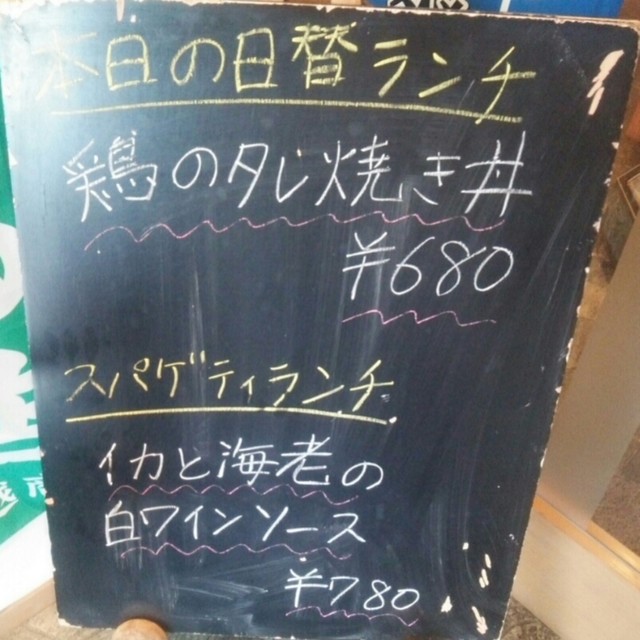 本日の日替ランチ
鶏のタレ焼き丼
¥680
スパゲティランチ
イカと海老の
白ワインソース
¥780